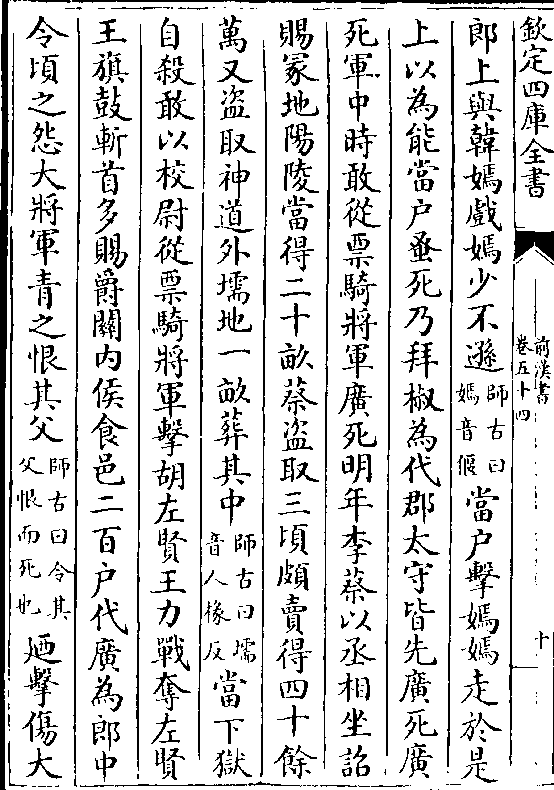 欽定四庫全書
前漢書
卷五十四
十
郎上與韓嫣戲嫣少不遜師古曰嫣音偃當户擊嫣嫣走於是
上以為能當户蚤死乃拜椒為代郡太守皆先廣死廣
死軍中時敢從票騎將軍廣死明年李蔡以丞相坐詔
賜冢地陽陵當得二十畝蔡盜取三頃頗賣得四十餘
萬又盜取神道外壖地一畝葬其中師古曰壖音人椽反當下獄
自殺敢以校尉從票騎將軍擊胡左賢王力戰奪左賢
王旗鼓斬首多賜爵關内侯食邑二百户代廣為郎中
令頃之怨大將軍青之恨其父師古曰令其父恨而死也廼擊傷大